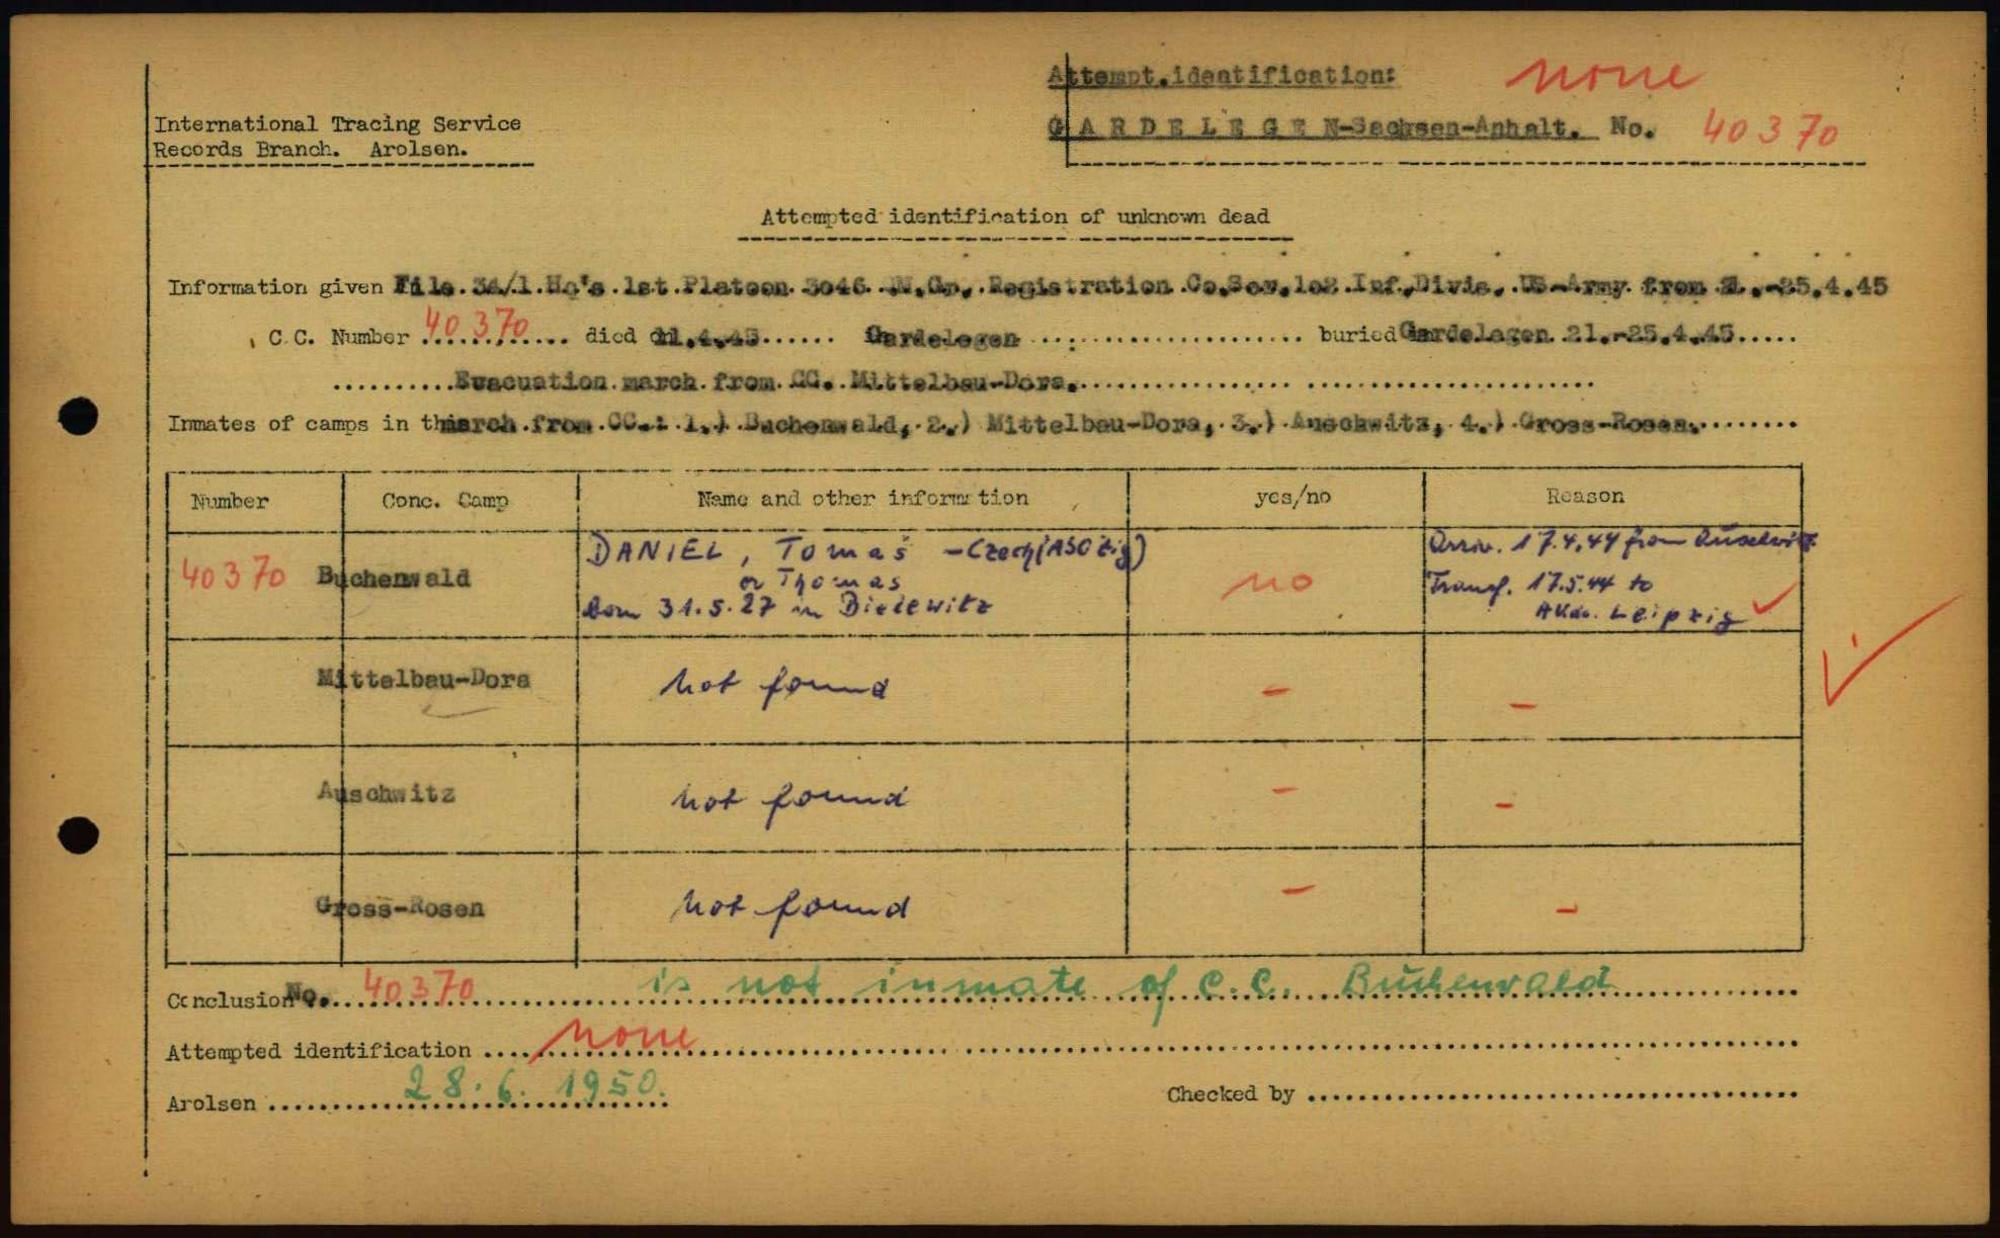 Attempt.identification: none
International Tracing Service
Records Branch. Arolsen.
G A R D E L E G E N-Sachsen-Anhalt. No. 40370
Attempted identification of unknown dead
Information given File.3A/1.Hq's.1st.Platoon.3046..Gr..Registration.Co.Ser.102.Inf.Divis..US-Army.from.21.-25.4.45
C.C. Number 40370 died on 11.4.45...... Gardelegen ........ buried Gardelegen.21.-25.4.45.....
..........Evacuation.march.from.CC..Mittelbau-Dora...........
Inmates of camps in the march.from.CC.: 1.) Buchenwald, 2.) Mittelbau-Dora, 3.) Auschwitz, 4.) Gross-Rosen.........
Number Conc. Camp Name and other information yes/no Reason
40370 Buchenwald DANIEL, Tomaš - Czech (ASO Zig) no Arriv. 17.4.44 from Auschwitz
or Thomas Transf. 17.5.44 to
born 31.5.27 in Bielewitz AKdo. Leipzig
Mittelbau-Dora not found - -
Auschwitz not found - -
Gross-Rosen not found - -
Conclusion No. 40370 is not inmate of C.C. Buchenwald
Attempted identification .... none
Arolsen 28.6.1950. Checked by